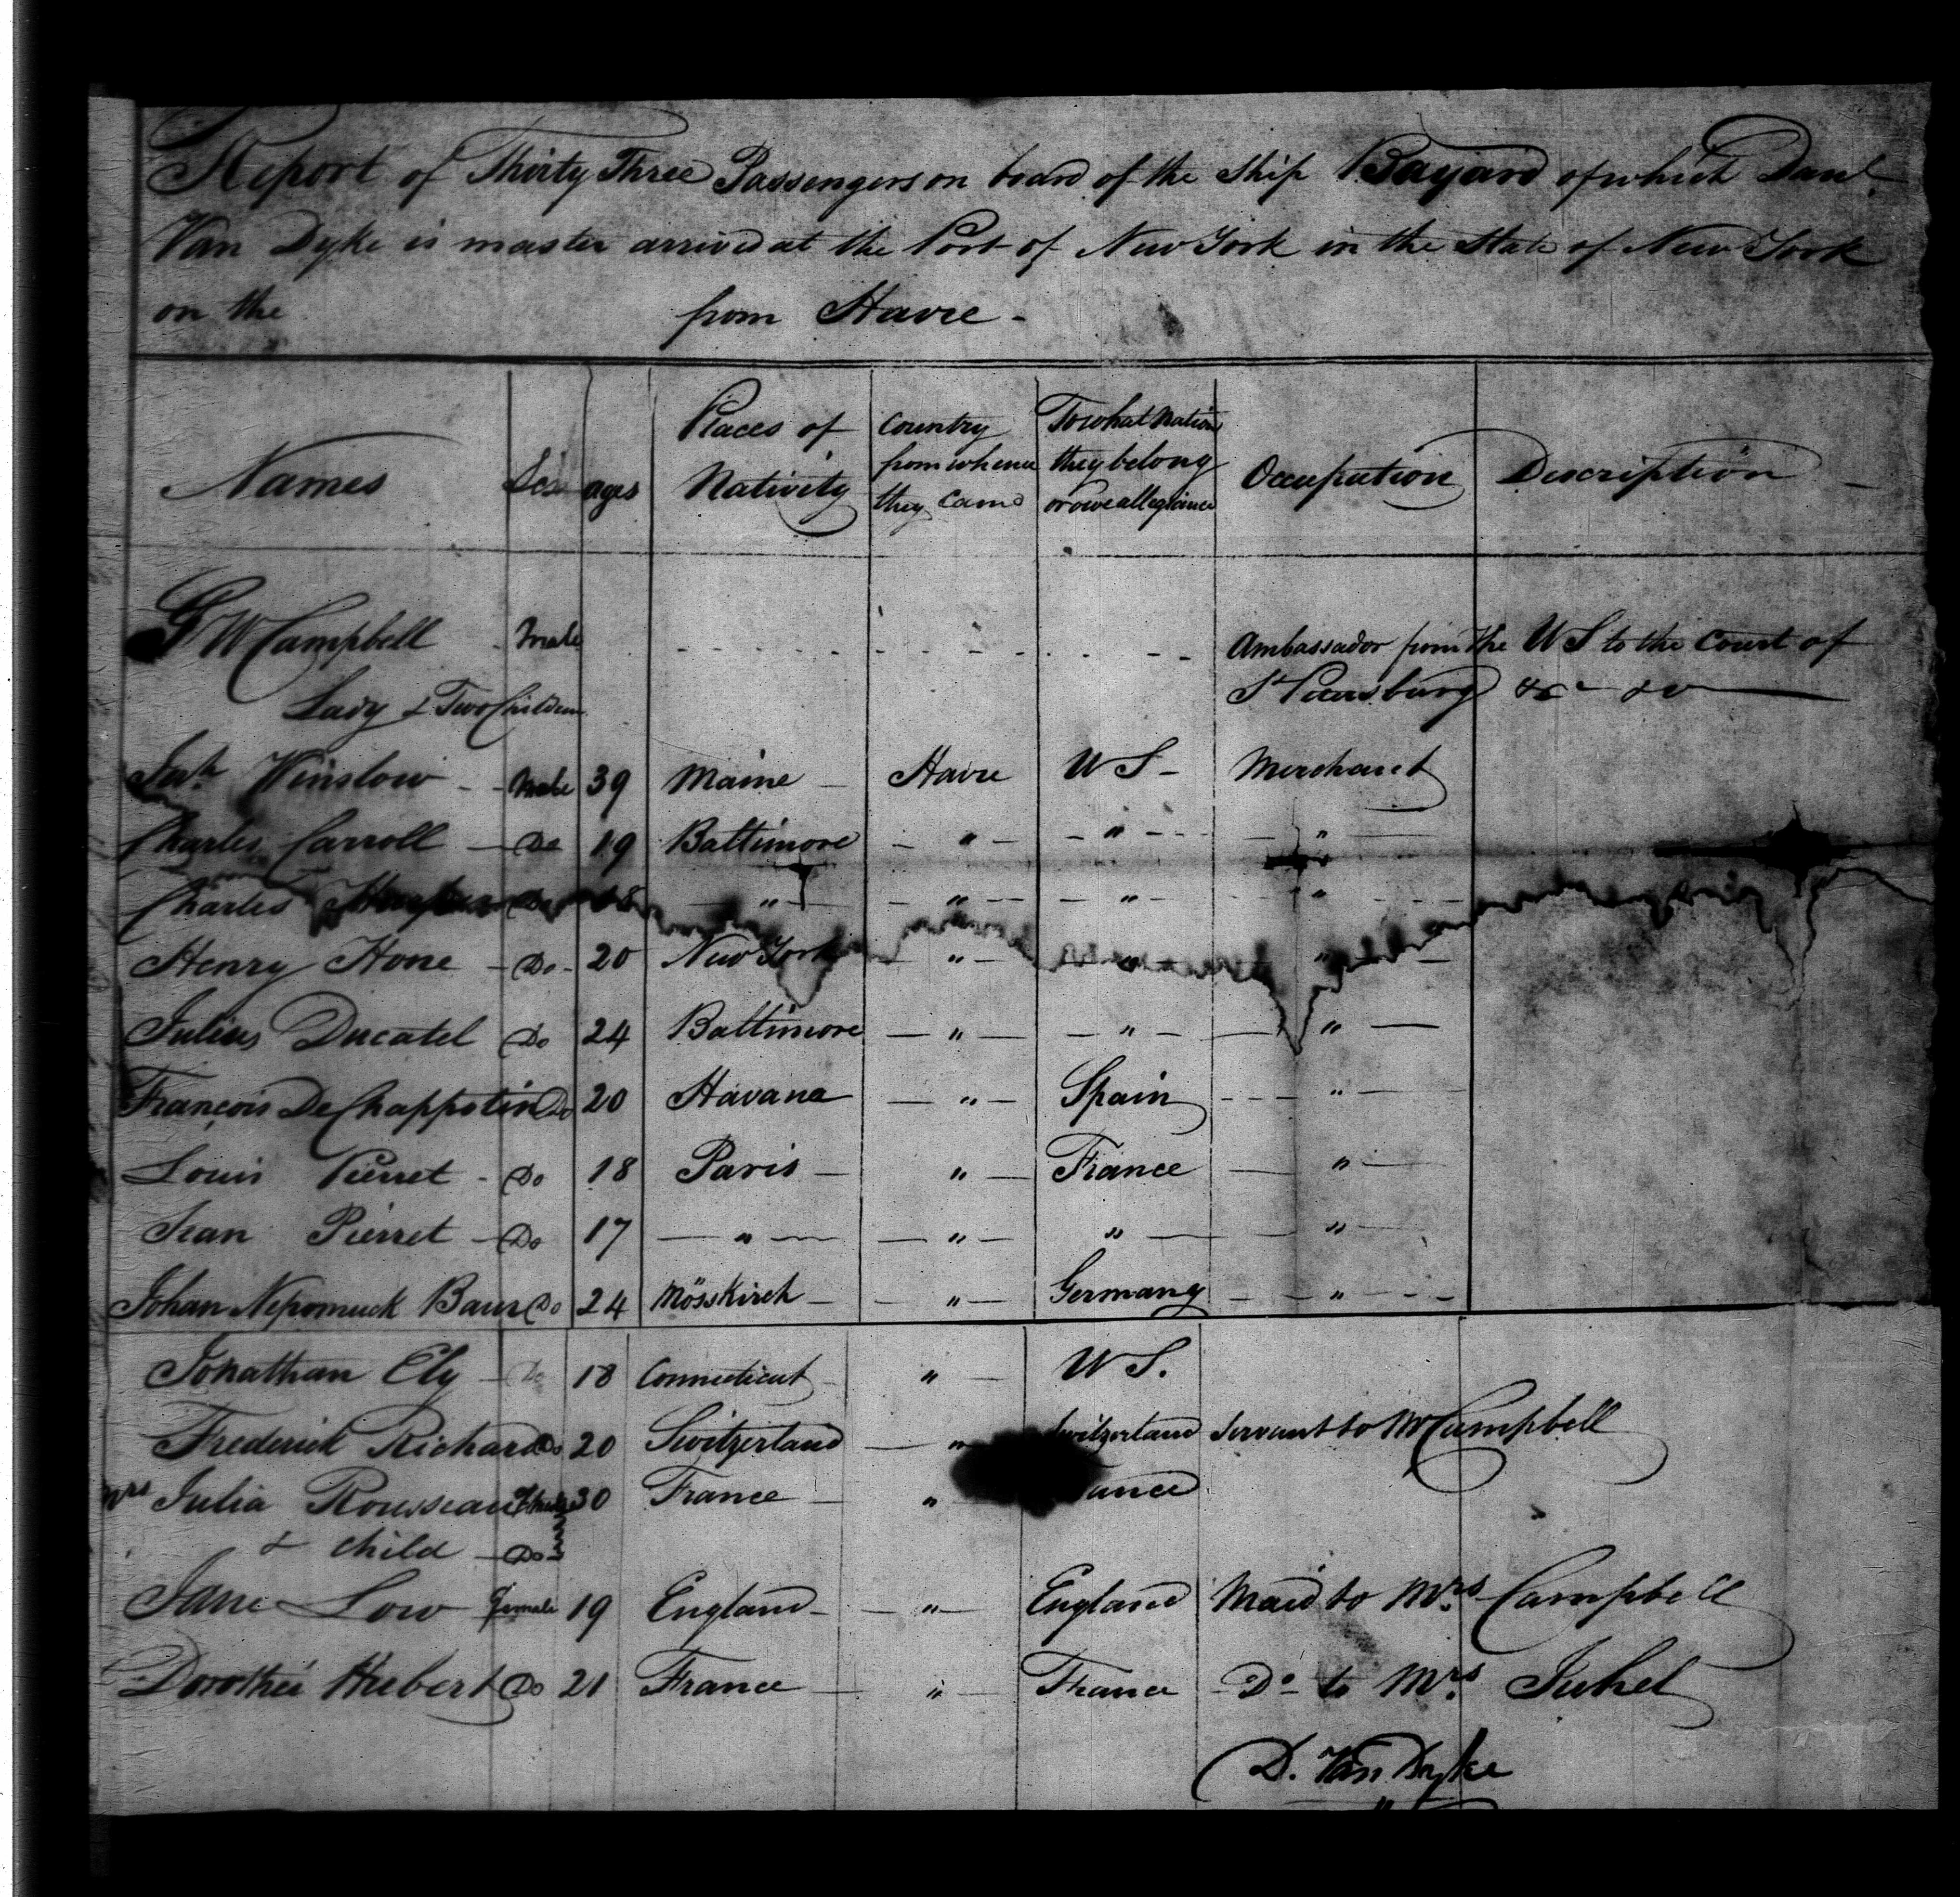 Report of Thirty Three Passengers on board of the Ship Bayard of which Danl.
Van Dyke is master arrived at the Port of New York in the State of New York
on the from Havre -
Names Sex ages Places of Nativity Country from whence they Came To what Nation they belong or owe allegiance Occupation Description
G W Campbell - Male Ambassador from the U S to the Court of
Lady & Two Children St Petersburg &c
Winslow - Male 39 Maine - Havre U S - Merchant
Charles Carroll - Do 19 Baltimore - " - - " - - " -
Charles Do 18 - " - - " - - " - - " -
Henry Hone - Do - 20 New York - " - - " - - " -
Julius Ducatel Do 24 Baltimore - " - - " - - " -
François De Chappotin Do 20 Havana - " - Spain - " -
Louis Pierret - Do 18 Paris - " - France - " -
Jean Pierret - Do 17 - " - - " - " - - " -
Johan Nepomuck Baur Do 24 Mösskirch - - " - Germany - " -
Jonathan Ely - Do 18 Connecticut " - U S.
Frederick Richard Do 20 Switzerland - " Switzerland Servant to Mr Campbell
Mrs Julia Rousseau Female 30 France - " France
& child - Do
Jane Low female 19 England - - " - England Maid to Mrs Campbell
Dorothée Hubert Do 21 France - " - France Do - to Mrs. Juhel
D. Van Dyke